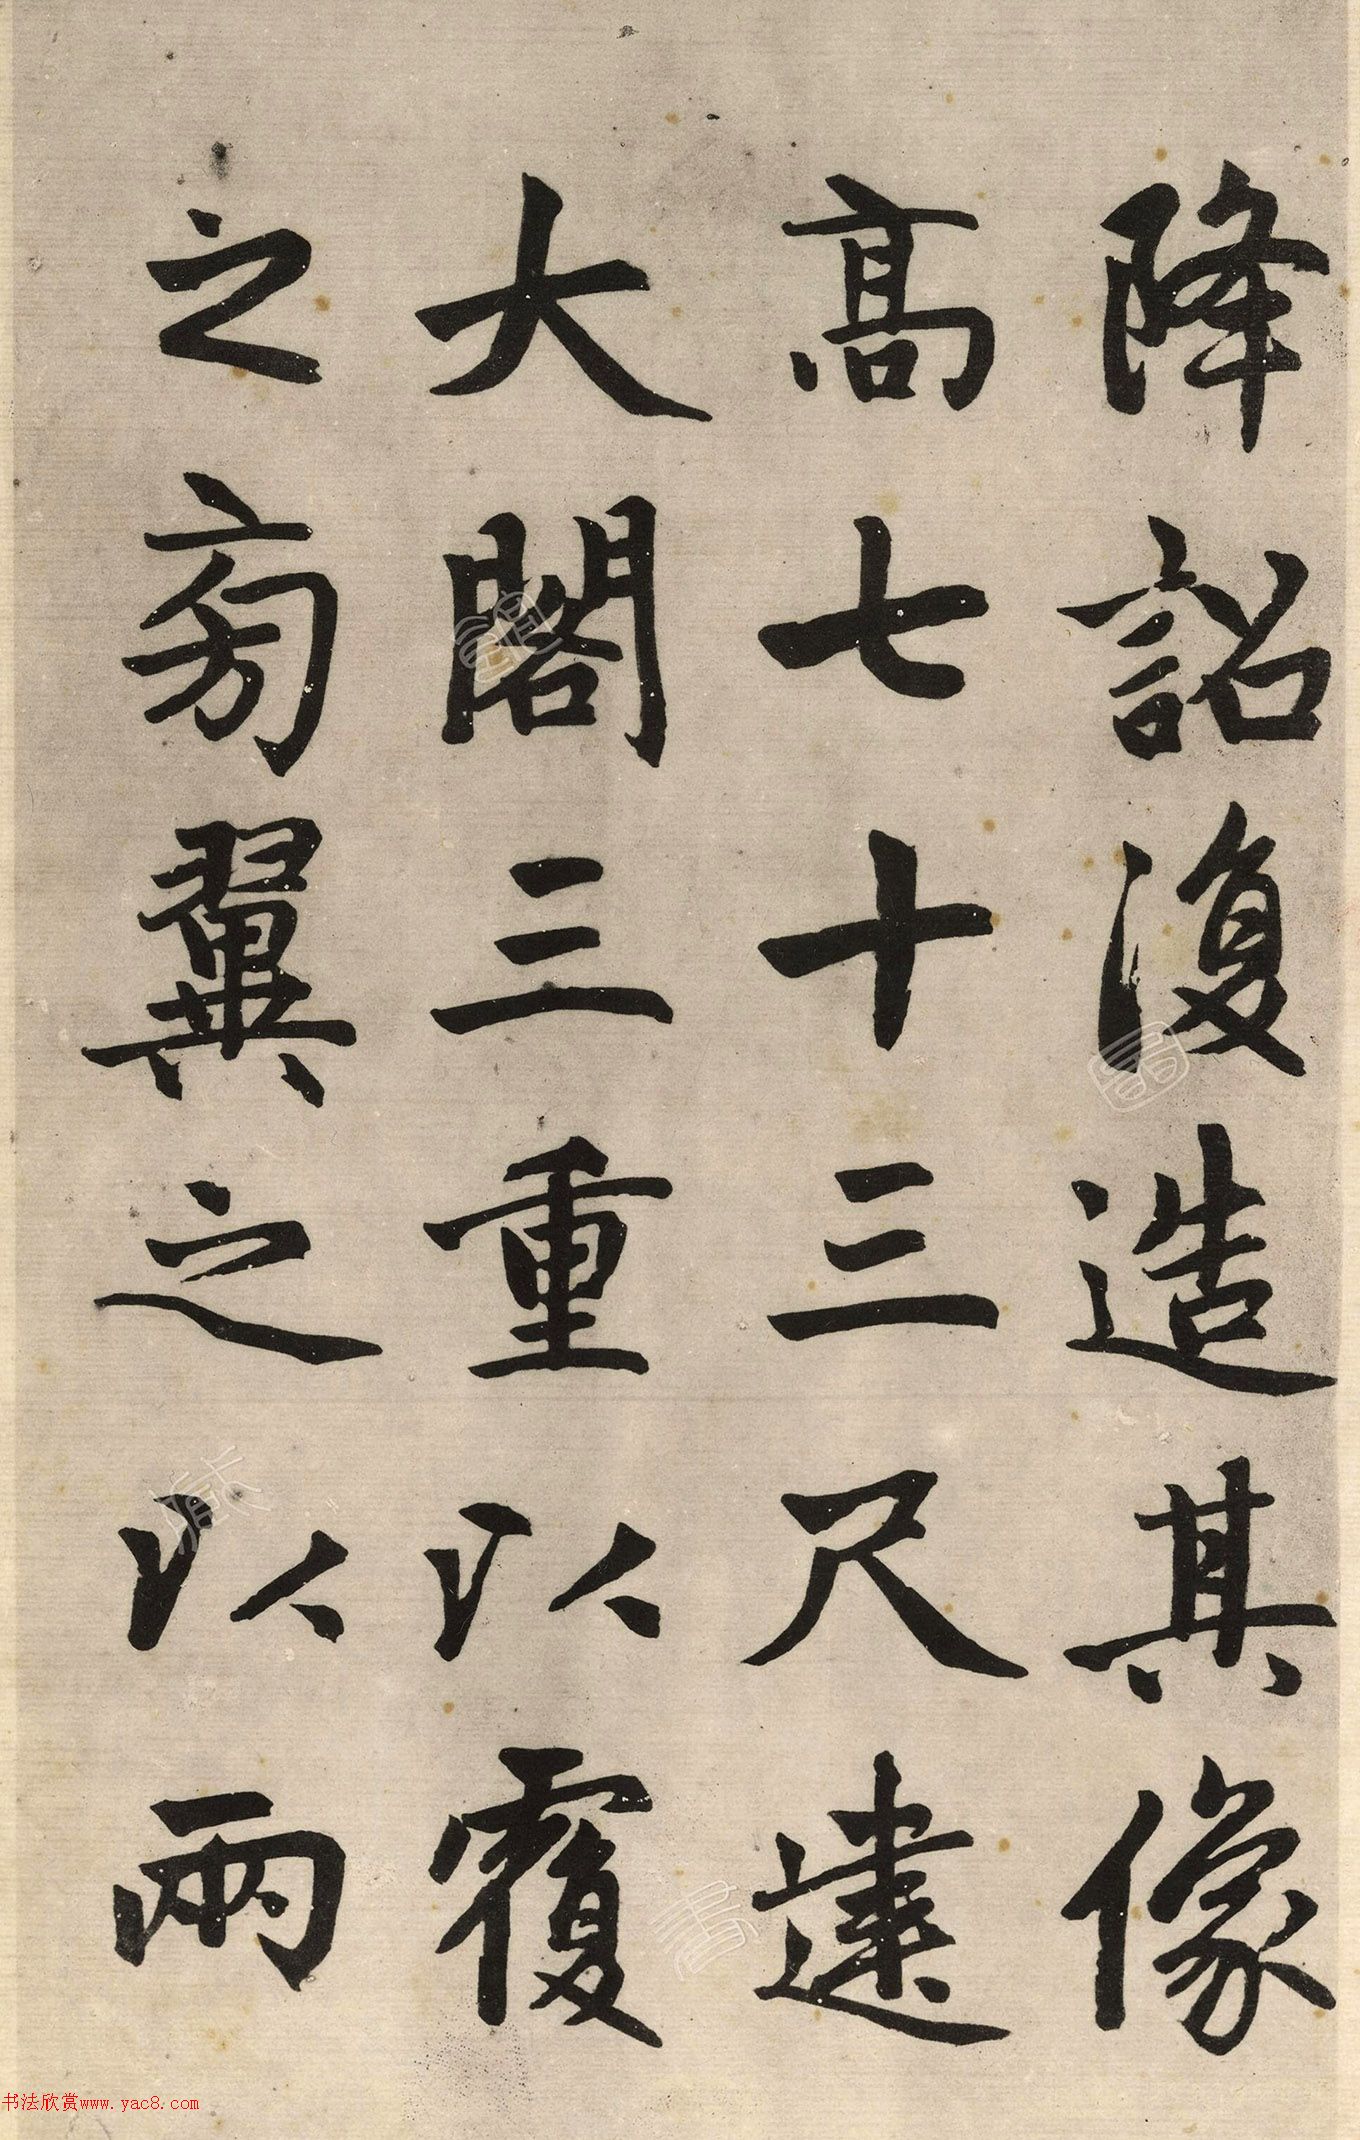 降詔復造其像
高七十三尺建
大閣三重以覆
之旁翼之以兩
书法欣赏www.yac8.com